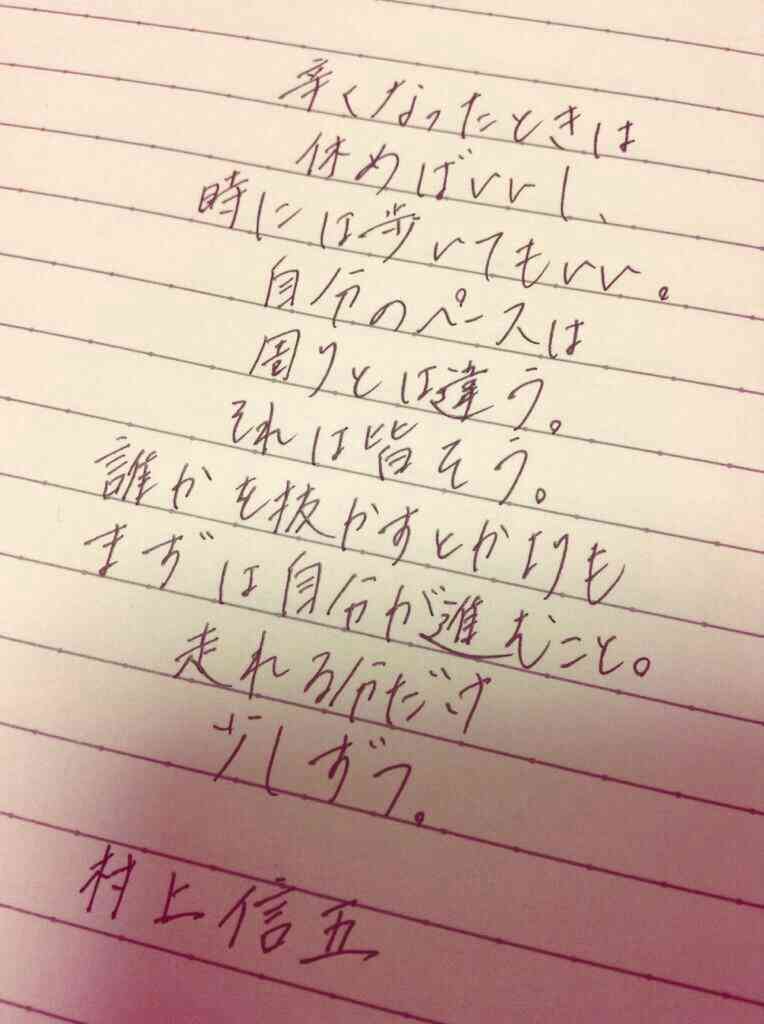 辛くなったときは
休めばいいし、
時には歩いてもいい。
自分のペースは
周りとは違う。
それは皆そう。
誰かを抜かすとかよりも
まずは自分が進むこと。
走れる分だけ
少しずつ。
村上信五